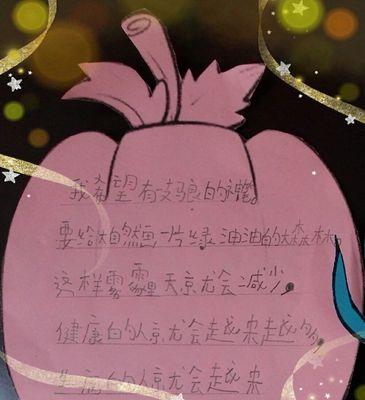 我希望有一枝马良的神笔。
要给大自然画一片绿油油的大森林。
这样雾霾天就会减少。
健康的人就会越来越多，
生病的人就会越来